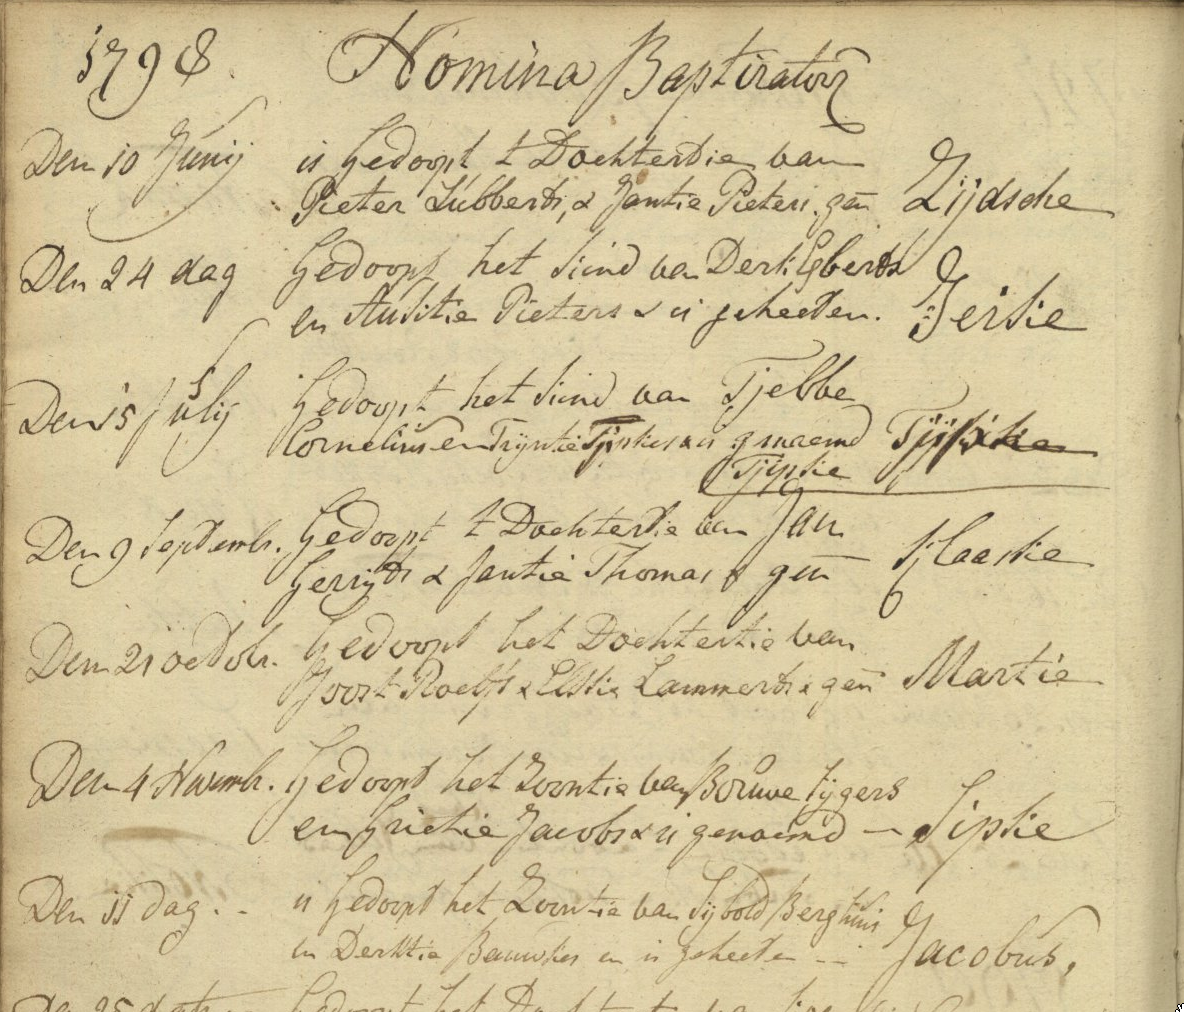 1798. Nomina Baptizator
Den 10 Junij is Gedoopt t Dochtertie van
Pieter Lubberts, & Jantie Pieters, gen Zijdsche
Den 24 dag Gedoopt het kind van Derk Egberts
en Aukitie Pieters & is geheeten. Jeisie
Den 15 Julij Gedoopt het kind van Tjebbe
Cornelius en Trijntie Tjipkes & is genaemd
Tjipkie
Den 9 Septembr. Gedoopt t Dochtertie van Jan
Gerrijts & Jantie Thomas & gen Klaaskie
Den 21 octobr. Gedoopt het Dochtertie van
Joost Roelfs & Elskie Lammerts & gen Martie
Den 4 Novmbr. Gedoopt het Zoontie van Bouwe Sijgers
en Grietie Jacobs & is genaemd – Sipkie
Den 11 dag. . . is Gedoopt het Zoontie van Sijbold Berghuis
en Derktie Bauwkes en is geheeten – – Jacobus,
Gedoopt het